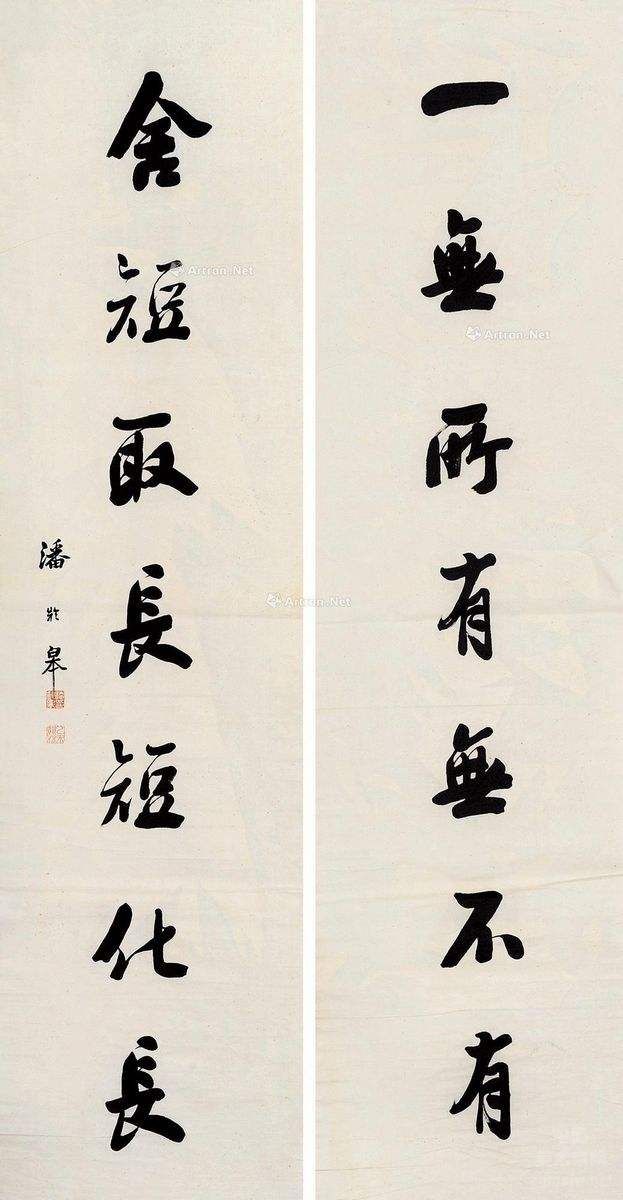 一無所有無不有
舍短取長短化長
潘齡皋
Artron.Net
Artron.Net
Artron.Net